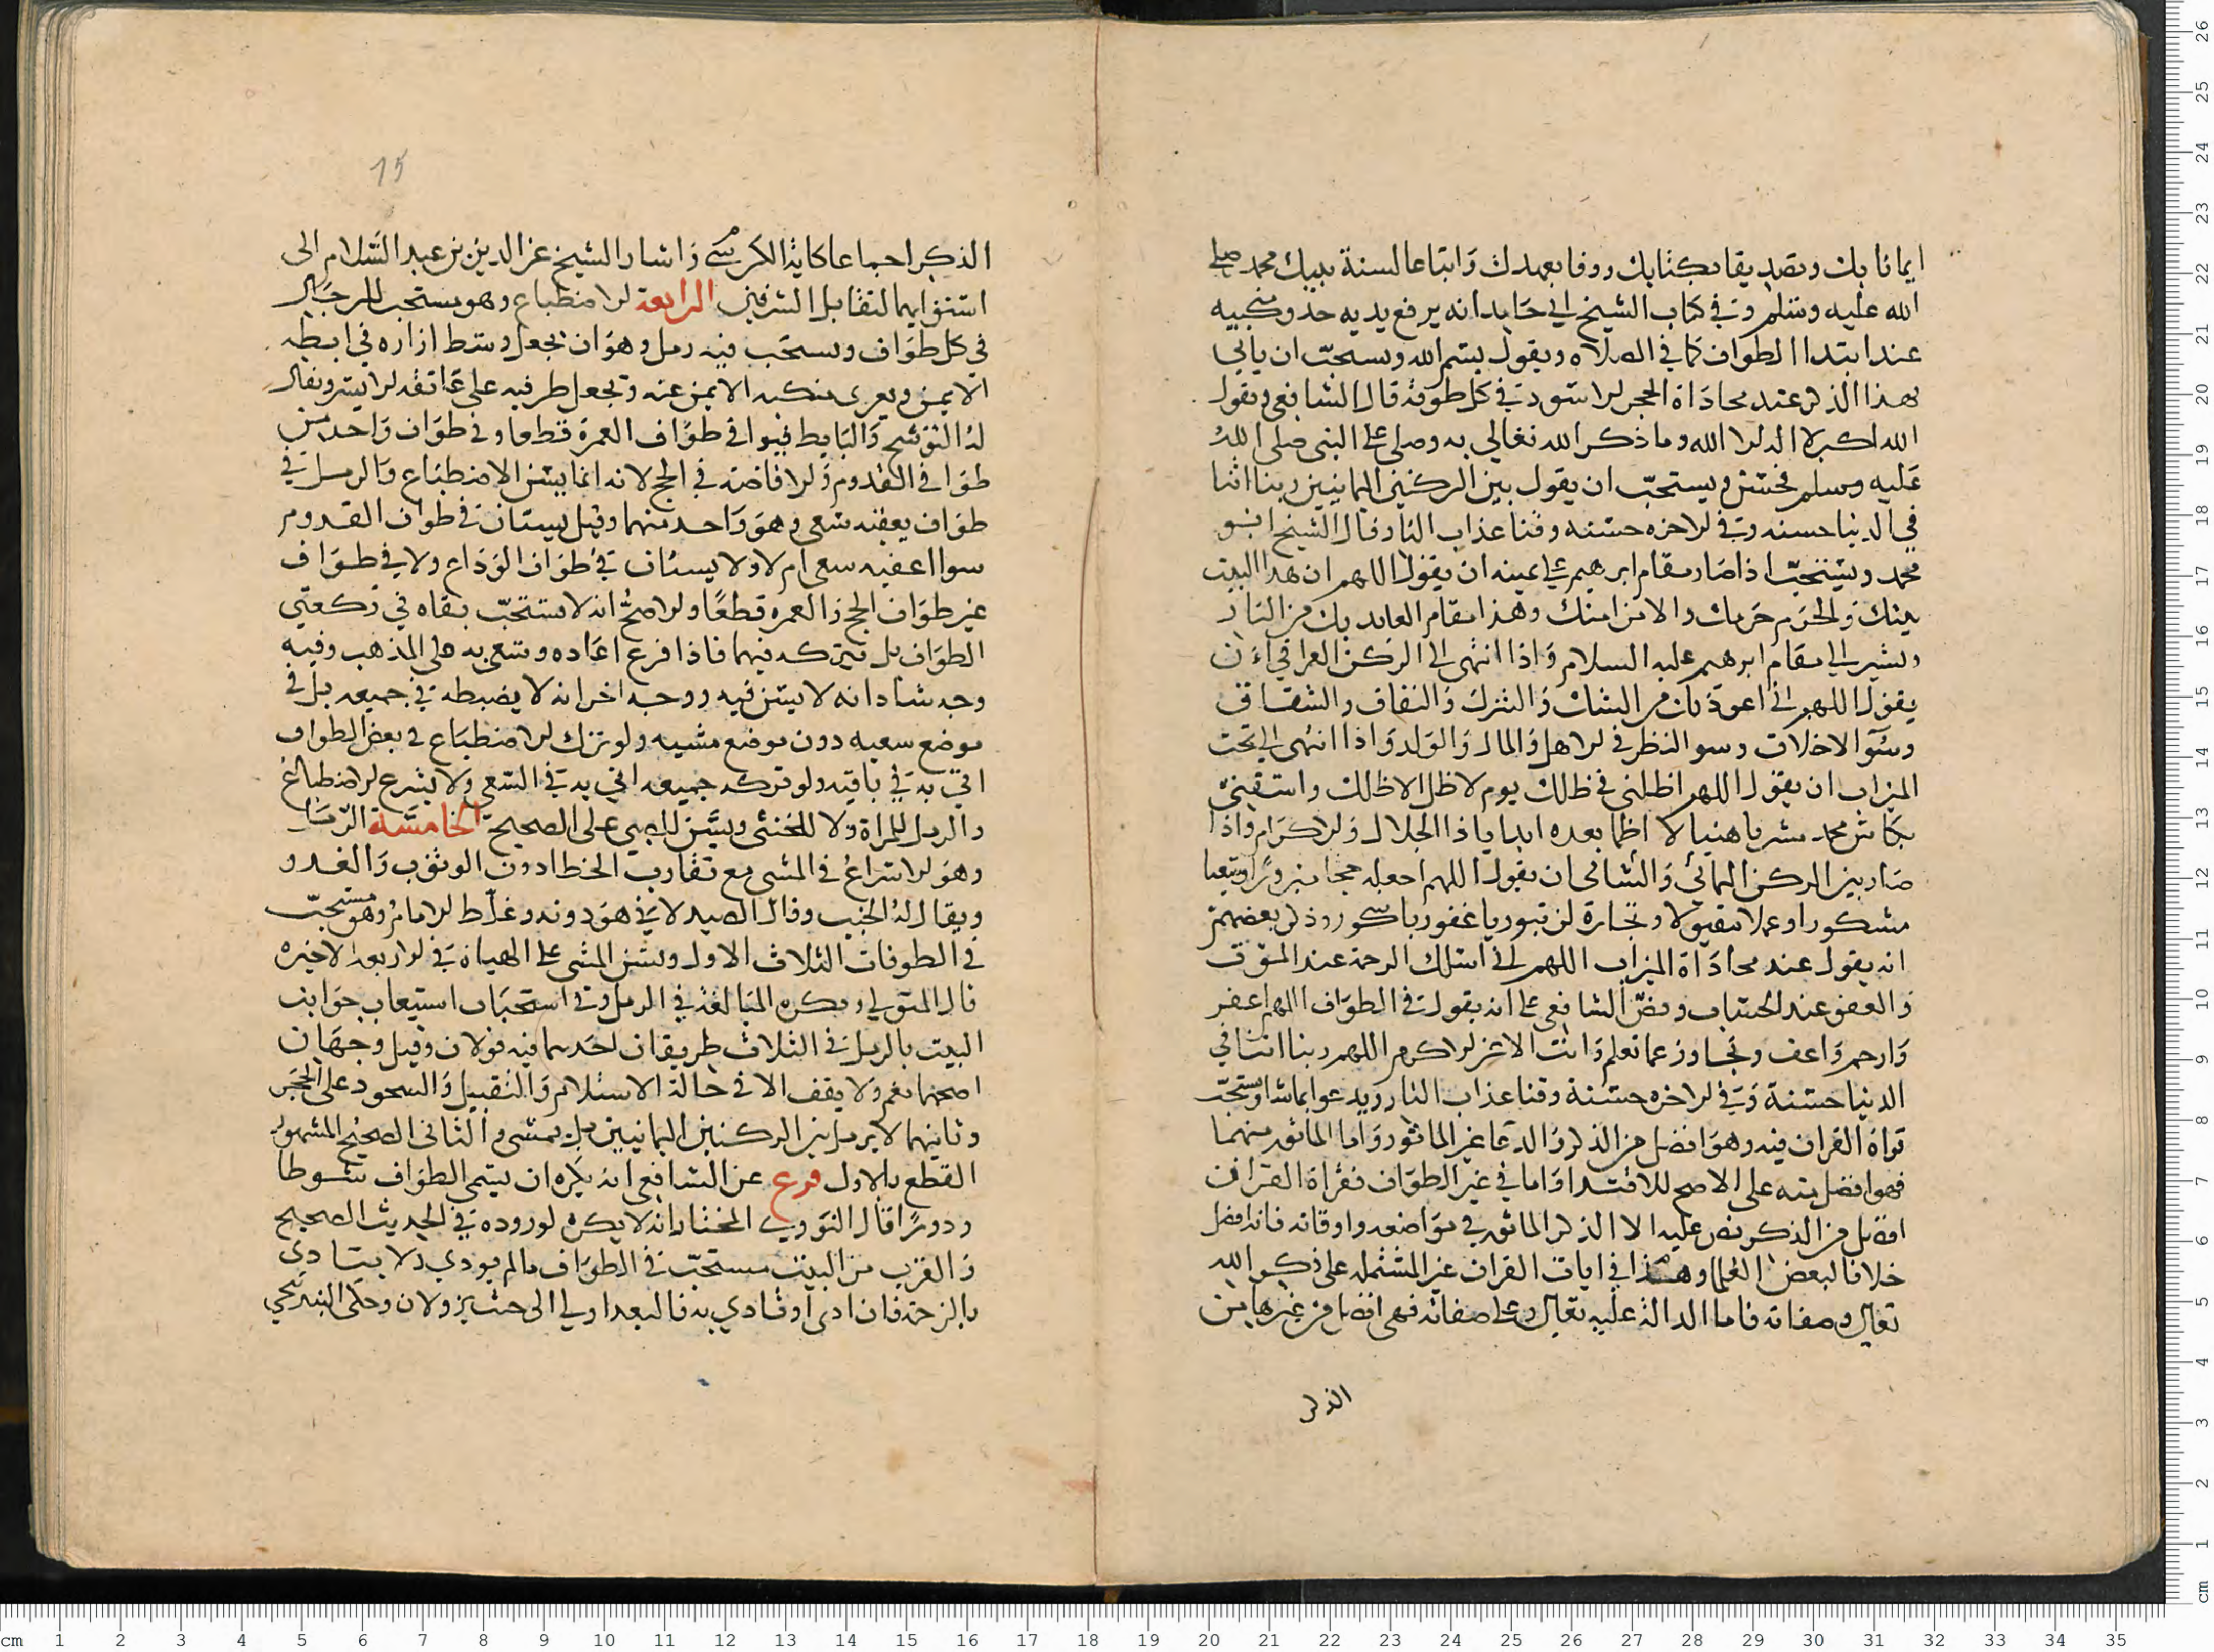 ايمانا بك وتصديقا بكتابك ووفا بعهدك واتباعا لسنة نبيك محمد صلى
الله عليه وسلم وفي كتاب الشيخ ابي حامد انه يرفع يديه حذو منكبيه
عند ابتدا الطواف كما في الصلاه ويقول بسم الله ويستحب ان ياتي
بهذا الذكر عند محاذاة الحجر الاسود في كل طوفة قال الشافعي ويقول
الله اكبر لا اله الا الله وما ذكر الله تعالى به وصلى على النبي صلى الله
عليه وسلم فحسن ويستحب ان يقول بين الركنين اليمانيين ربنا اتنا
في الدنيا حسنه وفي الاخره حسنه وقنا عذاب النار وقال الشيخ ابو
محمد ويستحب اذا صار مقام ابرهيم على يمينه ان يقول اللهم ان هذا البيت
بيتك والحرم حرمك والامن امنك وهذا مقام العايد بك من النار
ويشير الى مقام ابرهيم عليه السلام واذا انتهى الى الركن العراقي ان
يقول اللهم اني اعوذ بك من الشك والشرك والنفاق والشقاق
وسوٓ الاخلاق وسو النظر في الاهل والمال والولد واذا انتهى الى تحت
الميزاب ان يقول اللهم اظلني في ظلك يوم لا ظل الا ظلك واسقني
بكاس محمد مشربا هنيا لا اظما بعده ابدا ياذا الجلال والاكرام واذا
صار بين الركن اليماني والشامي ان يقول اللهم اجعله حجا مبرورا وسعيا
مشكورا وعملا مقبولا وتجارة لن تبور يا غفور يا شكور وذكر بعضهم
انه يقول عند محاذاة الميزاب اللهم اني اسلك الرحة عند الموت
والعفو عند الحساب ونص الشافعي على انه يقول في الطواف اللهم اغفر
وارحم واعف وتجاوز عما تعلم وانت الاعز الاكرم اللهم ربنا اتنا في
الدنيا حسنة وفي الاخره حسنة وقنا عذاب النار ويدعوا بما شا ويستحب
قراة القران فيه وهو افضل من الذكر والدعا غير الماثور واما الماثور منهما
فهو افضل منه على الاصح للاقتدا واما في غير الطواف فقراة القران
افضل من الذكر نص عليه الا الذكر الماثور في مواضعه واوقاته فانه افضل
خلافا لبعض العلما وهذا في ايات القران غير المشتمله على ذكر الله
تعالى وصفاته فاما الدالة عليه تعالى وعلى صفاته فهي افضل من غيرها من
الذكر
15
الذكر اجماعا كاية الكرسي واشار الشيخ عز الدين بن عبد السلام الى
استوايهما لتقابل الشرفين الرابعة الاضطباع وهو مستحب للرجال
في كل طواف ويستحب فيه رمل وهو ان يجعل وسط ازاره في ابطه
الايمن ويعرى منكبه الايمن عنه ويجعل طرفيه على عاتقه الايسر ويقال
له التوشح والتابط فيوا في طواف العمرة قطعا وفي طواف واحد من
طوافي القدوم والافاضة في الحج لانه انما يسن الاضطباع والرمل في
طواف يعقبه سعي وهو واحد منهما وقيل يسنان في طواف القدوم
سوا اعقبه سعي ام لا ولا يسنان في طواف الوداع ولا في طواف
غير طواف الحج والعمره قطعا والاصح انه لا يستحب بقاه في ركعتي
الطواف بل يتركه فيهما فاذا فرغ اعاده وسعى به على المذهب وفيه
وجه شاذ انه لا يسن فيه ووجه اخر انه لا يضبطه في جميعه بل في
موضع سعيه دون موضع مشيه ولو ترك الاضطباع في بعض الطواف
اتي به في باقيه ولو تركه جميعه اتي به في السعي ولا يشرع الاضطباع
والرمل للمراة ولا للخنثى ويسن للصبي على الصحيح الخامسة الرمل
وهو الاسراع في المشي مع تقارب الخطا دون الوثوب والعدو
ويقال له الخبب وقال الصيدلاني هو دونه وغلط الامام وهو مستحب
في الطوفات الثلاث الاول ويسن المشي على الهياة في الاربعة الاخيره
قال المتولي ويكره المبالغة في الرمل وفي استحباب استيعاب جوانب
البيت بالرمل في الثلاث طريقان احدهما فيه قولان وقيل وجهان
اصحهما نعم ولا يقف الا في حالة الاستلام والتقبيل والسجود على الحجر
وثانيهما لا يرمل بين الركنين اليمانيين بل يمشي والثاني الصحيح المشهور
القطع بالاول فرع عن الشافعي انه يكره ان يسمى الطواف شوطا
ودورا قال النووي المختار انه لا يكره لوروده في الحديث الصحيح
والقرب من البيت مستحب في الطواف مالم يودي ولا يتادى
بالزحة فان ادى او تادي به فالبعد اولي الى حيث يزول